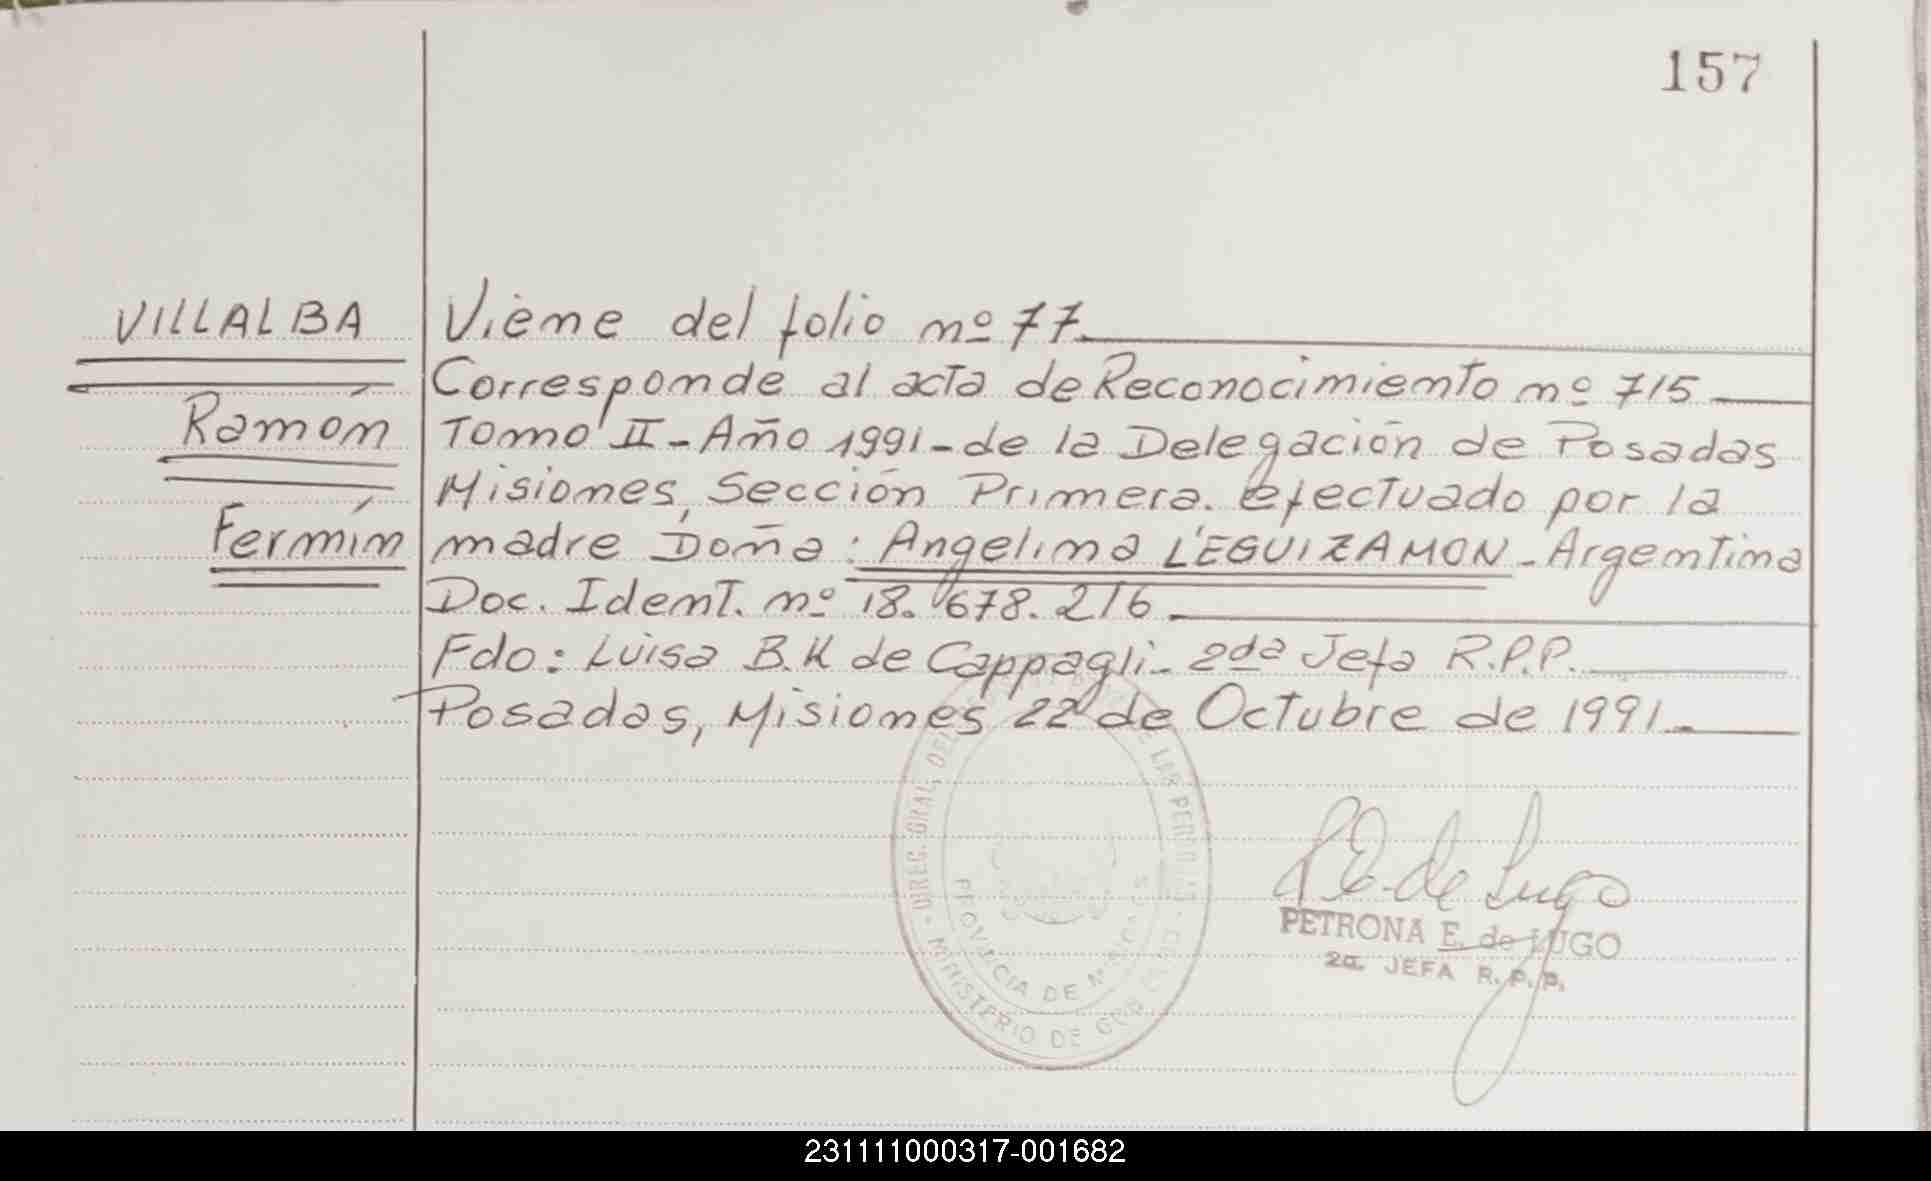 157
VILLALBA
Ramón
Fermín
Viene del folio nº 77
Corresponde al acta de Reconocimiento nº 715
Tomo II - Año 1991 - de la Delegación de Posadas
Misiones, Sección Primera. efectuado por la
madre Doña: Angelina LEGUIZAMON - Argentina
Doc. Ident. nº 18.678.216
Fdo: Luisa B.K de Cappagli - 2da Jefa R.P.P.
Posadas, Misiones 22 de Octubre de 1991
DIREC. GRAL. DE LAS PER
PROVINCIA DE MISIONES
MINISTERIO DE
P E. de Lugo
PETRONA E. de LUGO
2a. JEFA R.P.P.
231111000317-001682